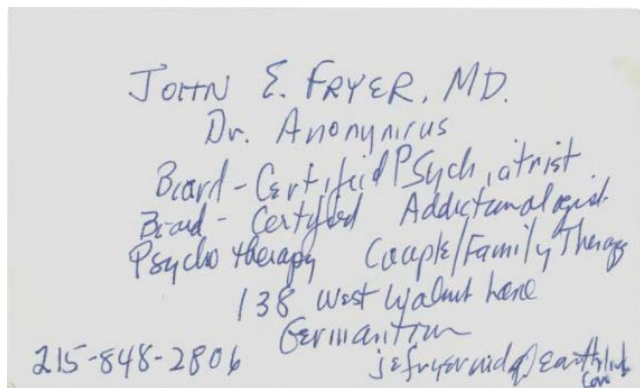 JOHN E. FRYER, MD.
Dr. Anonymous
Board-Certified Psychiatrist
Board-Certified Addictionologist
Psychotherapy Couple/Family Therapy
138 West Walnut Lane
Germantown
215-848-2806 jefryermd@earthlink.com